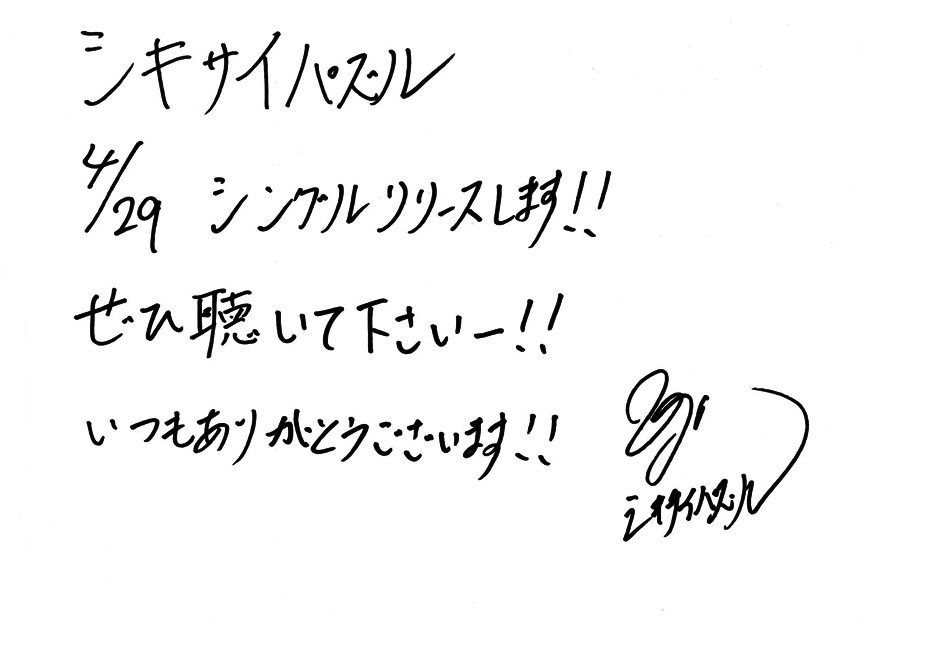 シキサイパズル
4/29 シングルリリースします!!
ぜひ聴いて下さいー!!
いつもありがとうございます!!
シキサイパズル